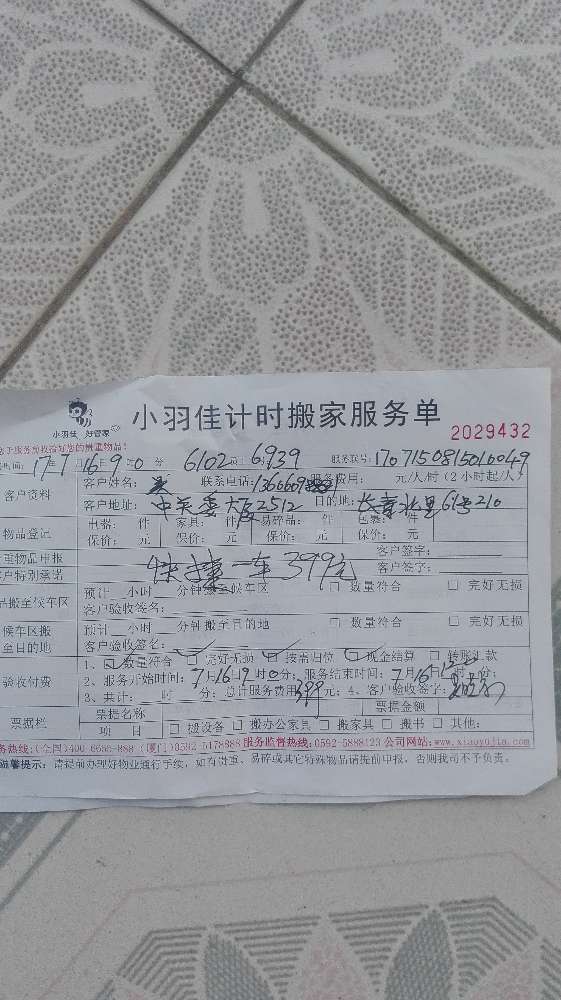 小羽佳 好管家
小羽佳计时搬家服务单
2029432
时间: 17年7月16日9时0分 6102 6939 服务联号: 170715081501
客户资料 客户姓名: 联系电话: 服务费用: 元/人/时(2小时起/人)
客户地址: 2512 目的地: 长青北里61号210
物品登记 电器: 件 家具: 件 易碎品: 件 包裹: 件
保价: 元 保价: 元 保价: 元 保价: 元
重物品申报 客户签字:
客户特别承诺 快捷一车399元 客户签字:
品搬至候车区 预计 小时 分钟搬至候车区 □ 数量符合 □ 完好无损
客户验收签名:
候车区搬至目的地 预计 小时 分钟搬至目的地 □ 数量符合 □ 完好无损
客户验收签名:
验收付费 1、□ 数量符合 □ 完好无损 □ 按需归位 □ 现金结算 □ 转账汇款
2、服务开始时间: 7月16日9时0分; 服务结束时间: 7月16日12
3、共计: 时 分; 总计服务费用399元; 4、客户验收签字:
票据栏 票据名称 票据金额
项 目 □ 搬设备 □ 搬办公家具 □ 搬家具 □ 搬书 □ 其他:
务热线:(全国)400-6666-888 (厦门)0592-5178888 服务监督热线:0592-5888123 公司网站:www.xiaoyujia.com
温馨提示: 请提前办理好物业通行手续, 如有贵重、易碎或其它特殊物品请提前申报, 否则我司不予负责。